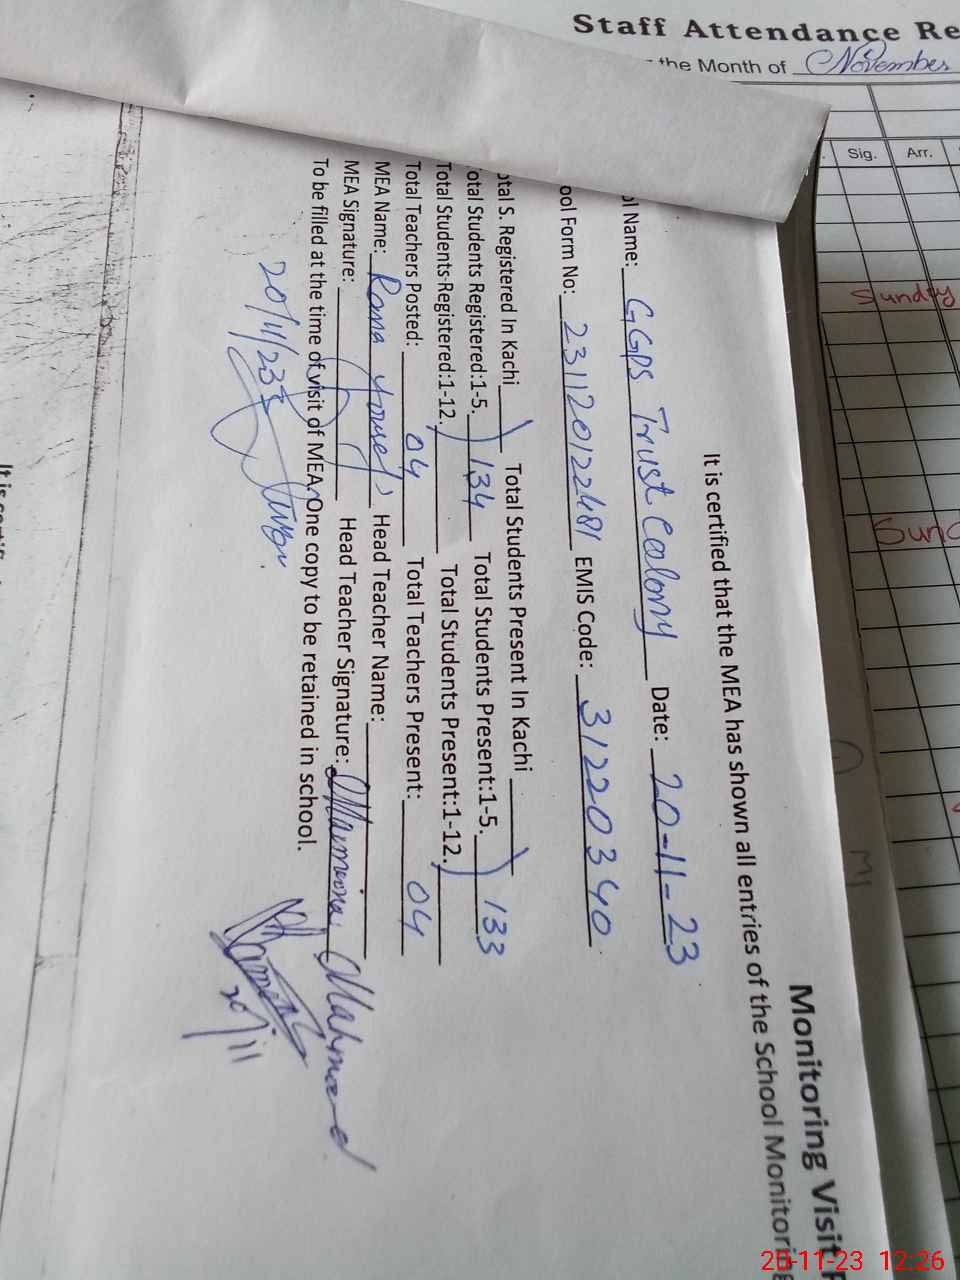 Staff Attendance Re
the Month of November
Sig. Arr.
Sunday
Sund
Monitoring Visit F
It is certified that the MEA has shown all entries of the School Monitoring
ol Name: GGPS Trust Coalony Date: 20-11-23
ool Form No: 231120122481 EMIS Code: 31220340
otal S. Registered In Kachi Total Students Present In Kachi
otal Students Registered:1-5. 134 Total Students Present:1-5. 133
Total Students-Registered:1-12. Total Students Present:1-12.
Total Teachers Posted: 04 Total Teachers Present: 04
MEA Name: Rana Yousef Head Teacher Name:
MEA Signature: Head Teacher Signature: Maimoona Mahmood
To be filled at the time of visit of MEA. One copy to be retained in school.
20/11/23
20/11
20-11-23 12:26